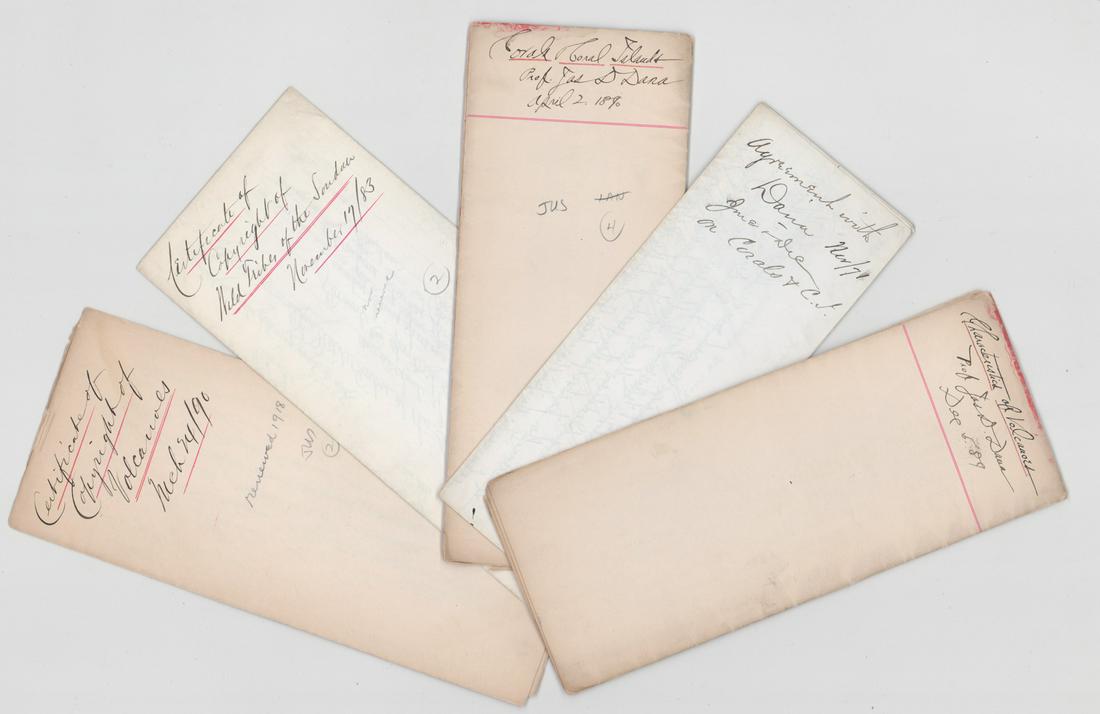 Certificate of
Copyright of
Volcanoes
Mch 24/90
renewed 1918
JUS
2
Certificate of
Copyright of
Wild Tribes of the Soudan
November 17/83
2
Corals & Coral Islands
Prof. Jas D Dana
April 2 1890
JUS JAN
4
Agreement with
Dana Nov/71
on Corals & C.I.
Characteristics of Volcanoes
Prof. Jas D. Dana
Dec 5 '89